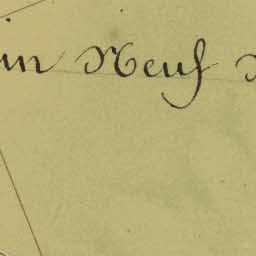 in Neuf